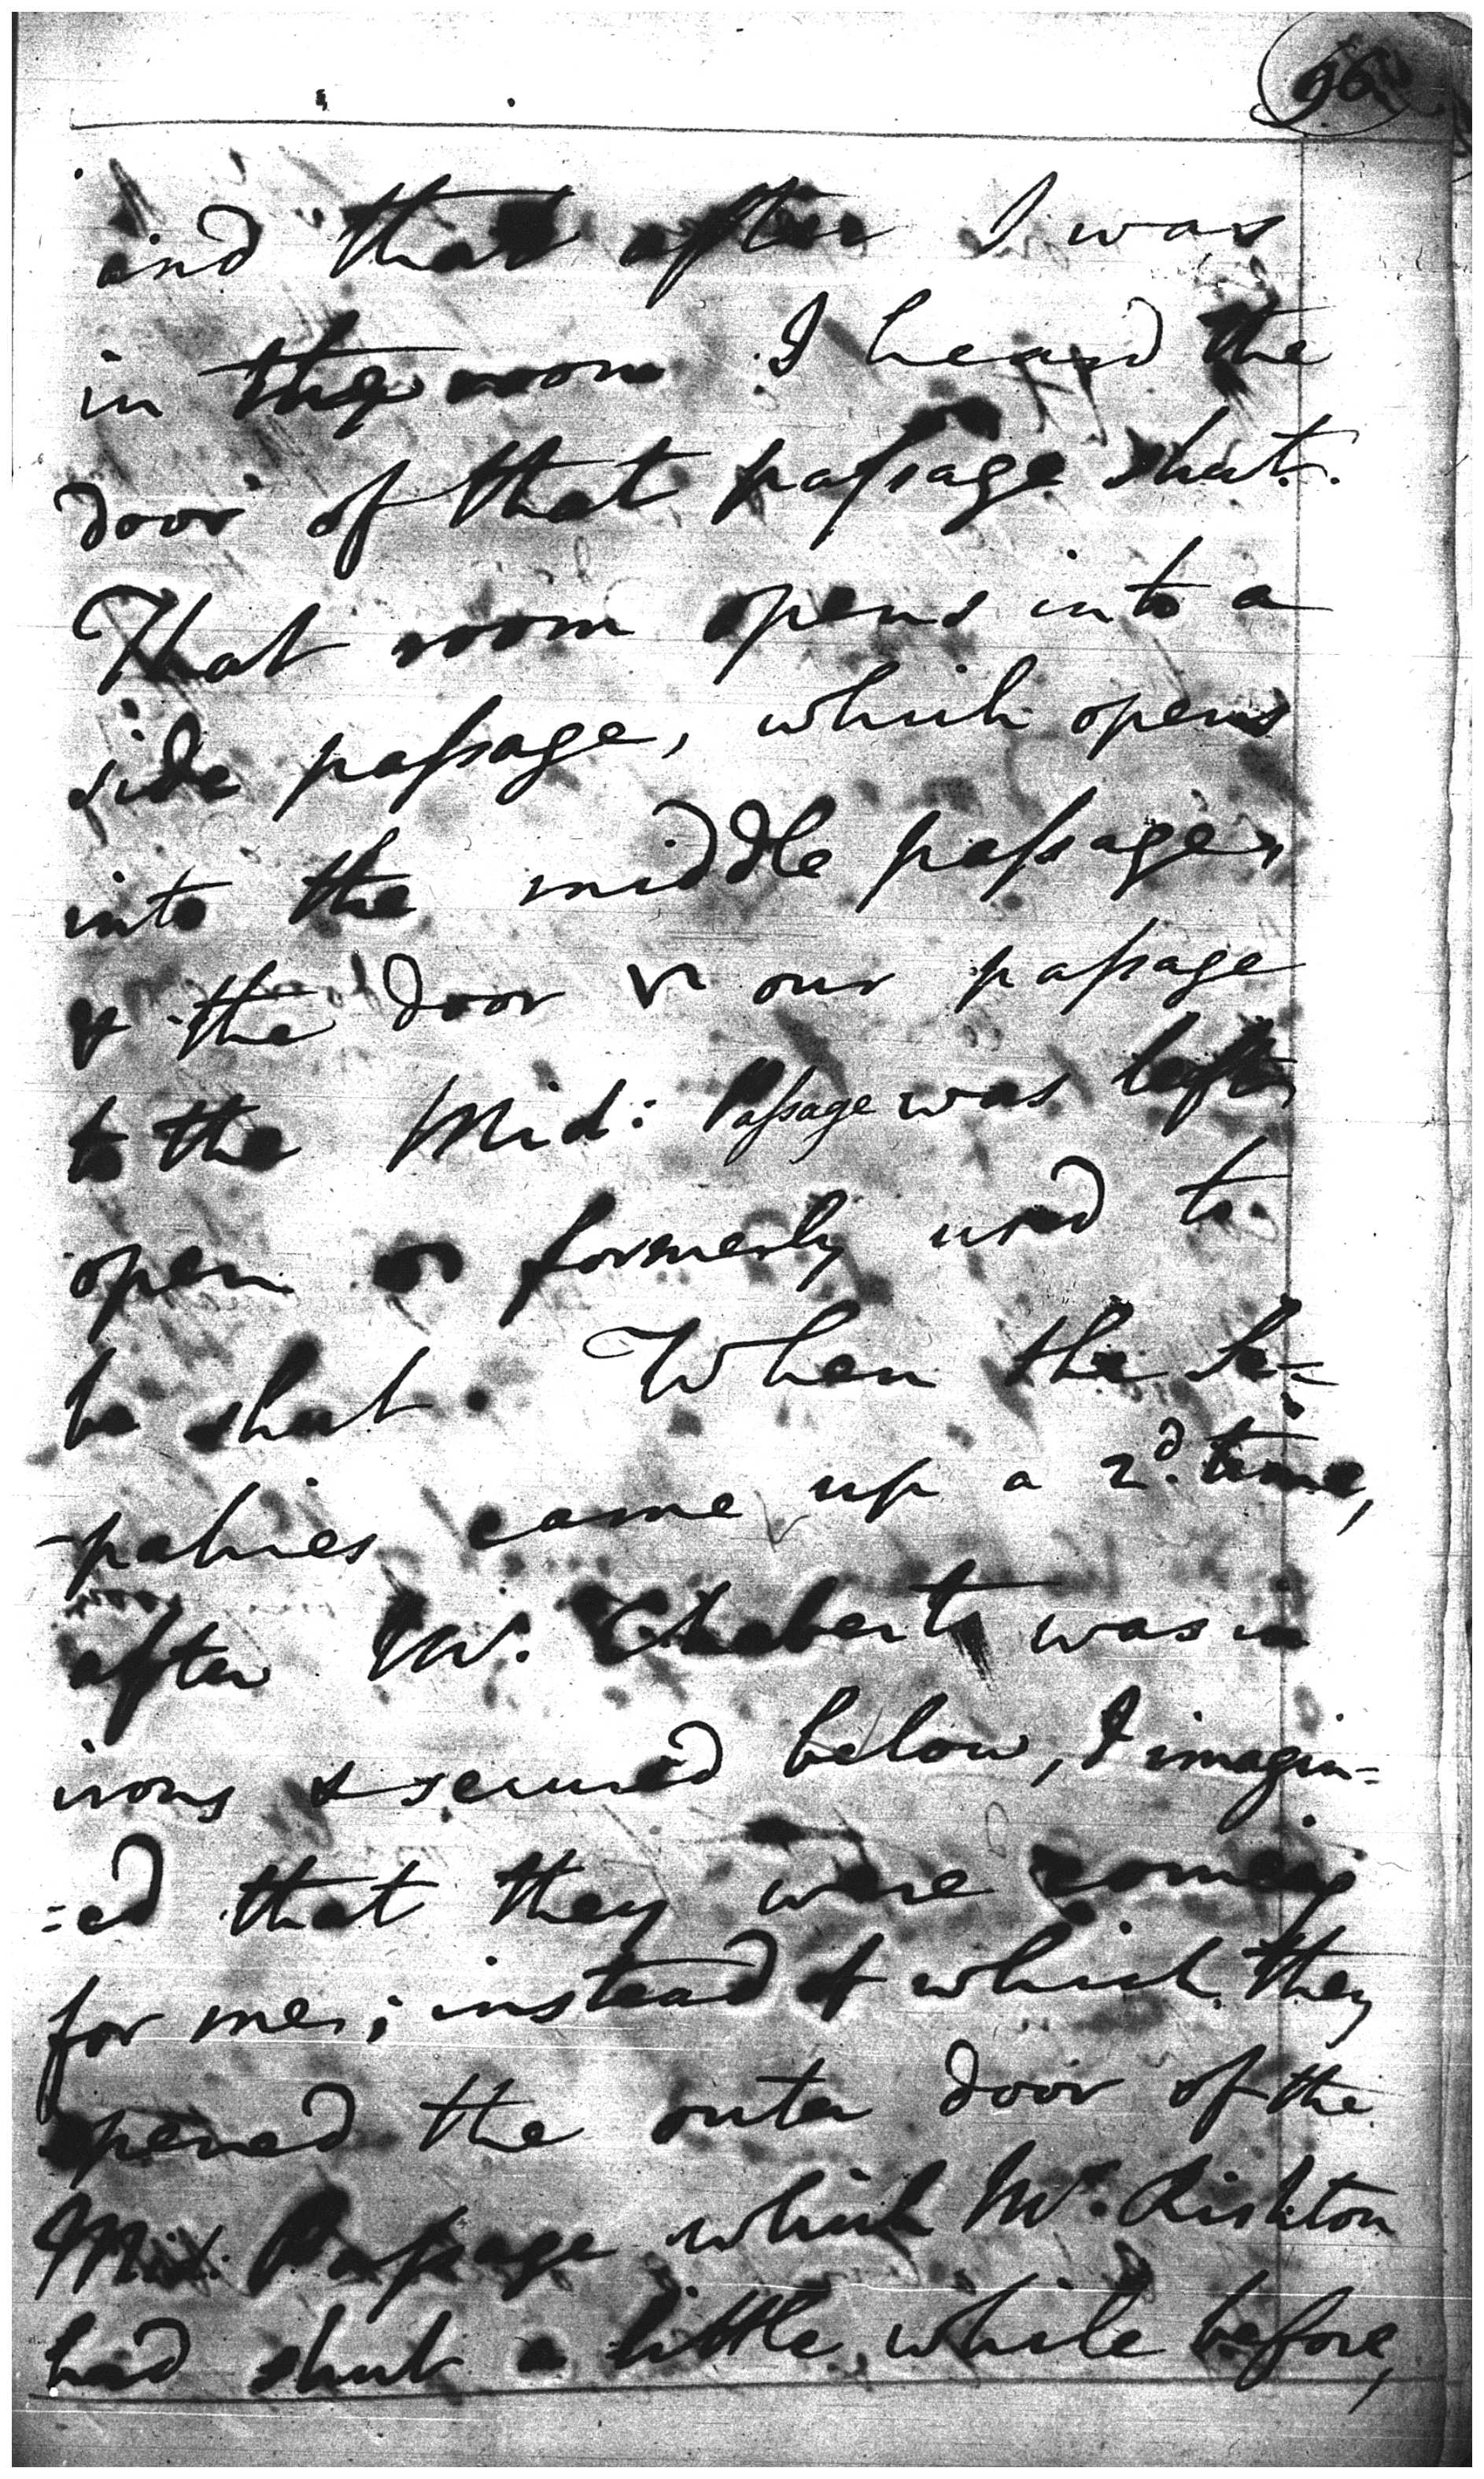 96
and that after I was
in the room I heard the
door of that passage shut.
That room opens into a
side passage, which opens
into the middle passage,
& the door our passage
to the Mid: Passage was left
open formerly used to
be shut. When the Se=
-pahies came up a 2d. time,
after Mr. Chabert was in
irons & secured below, I imagin=
=ed that they were coming
for me; instead of which they
opened the outer door of the
Mid: Passage which Mr. Rishton
had shut a little while before,